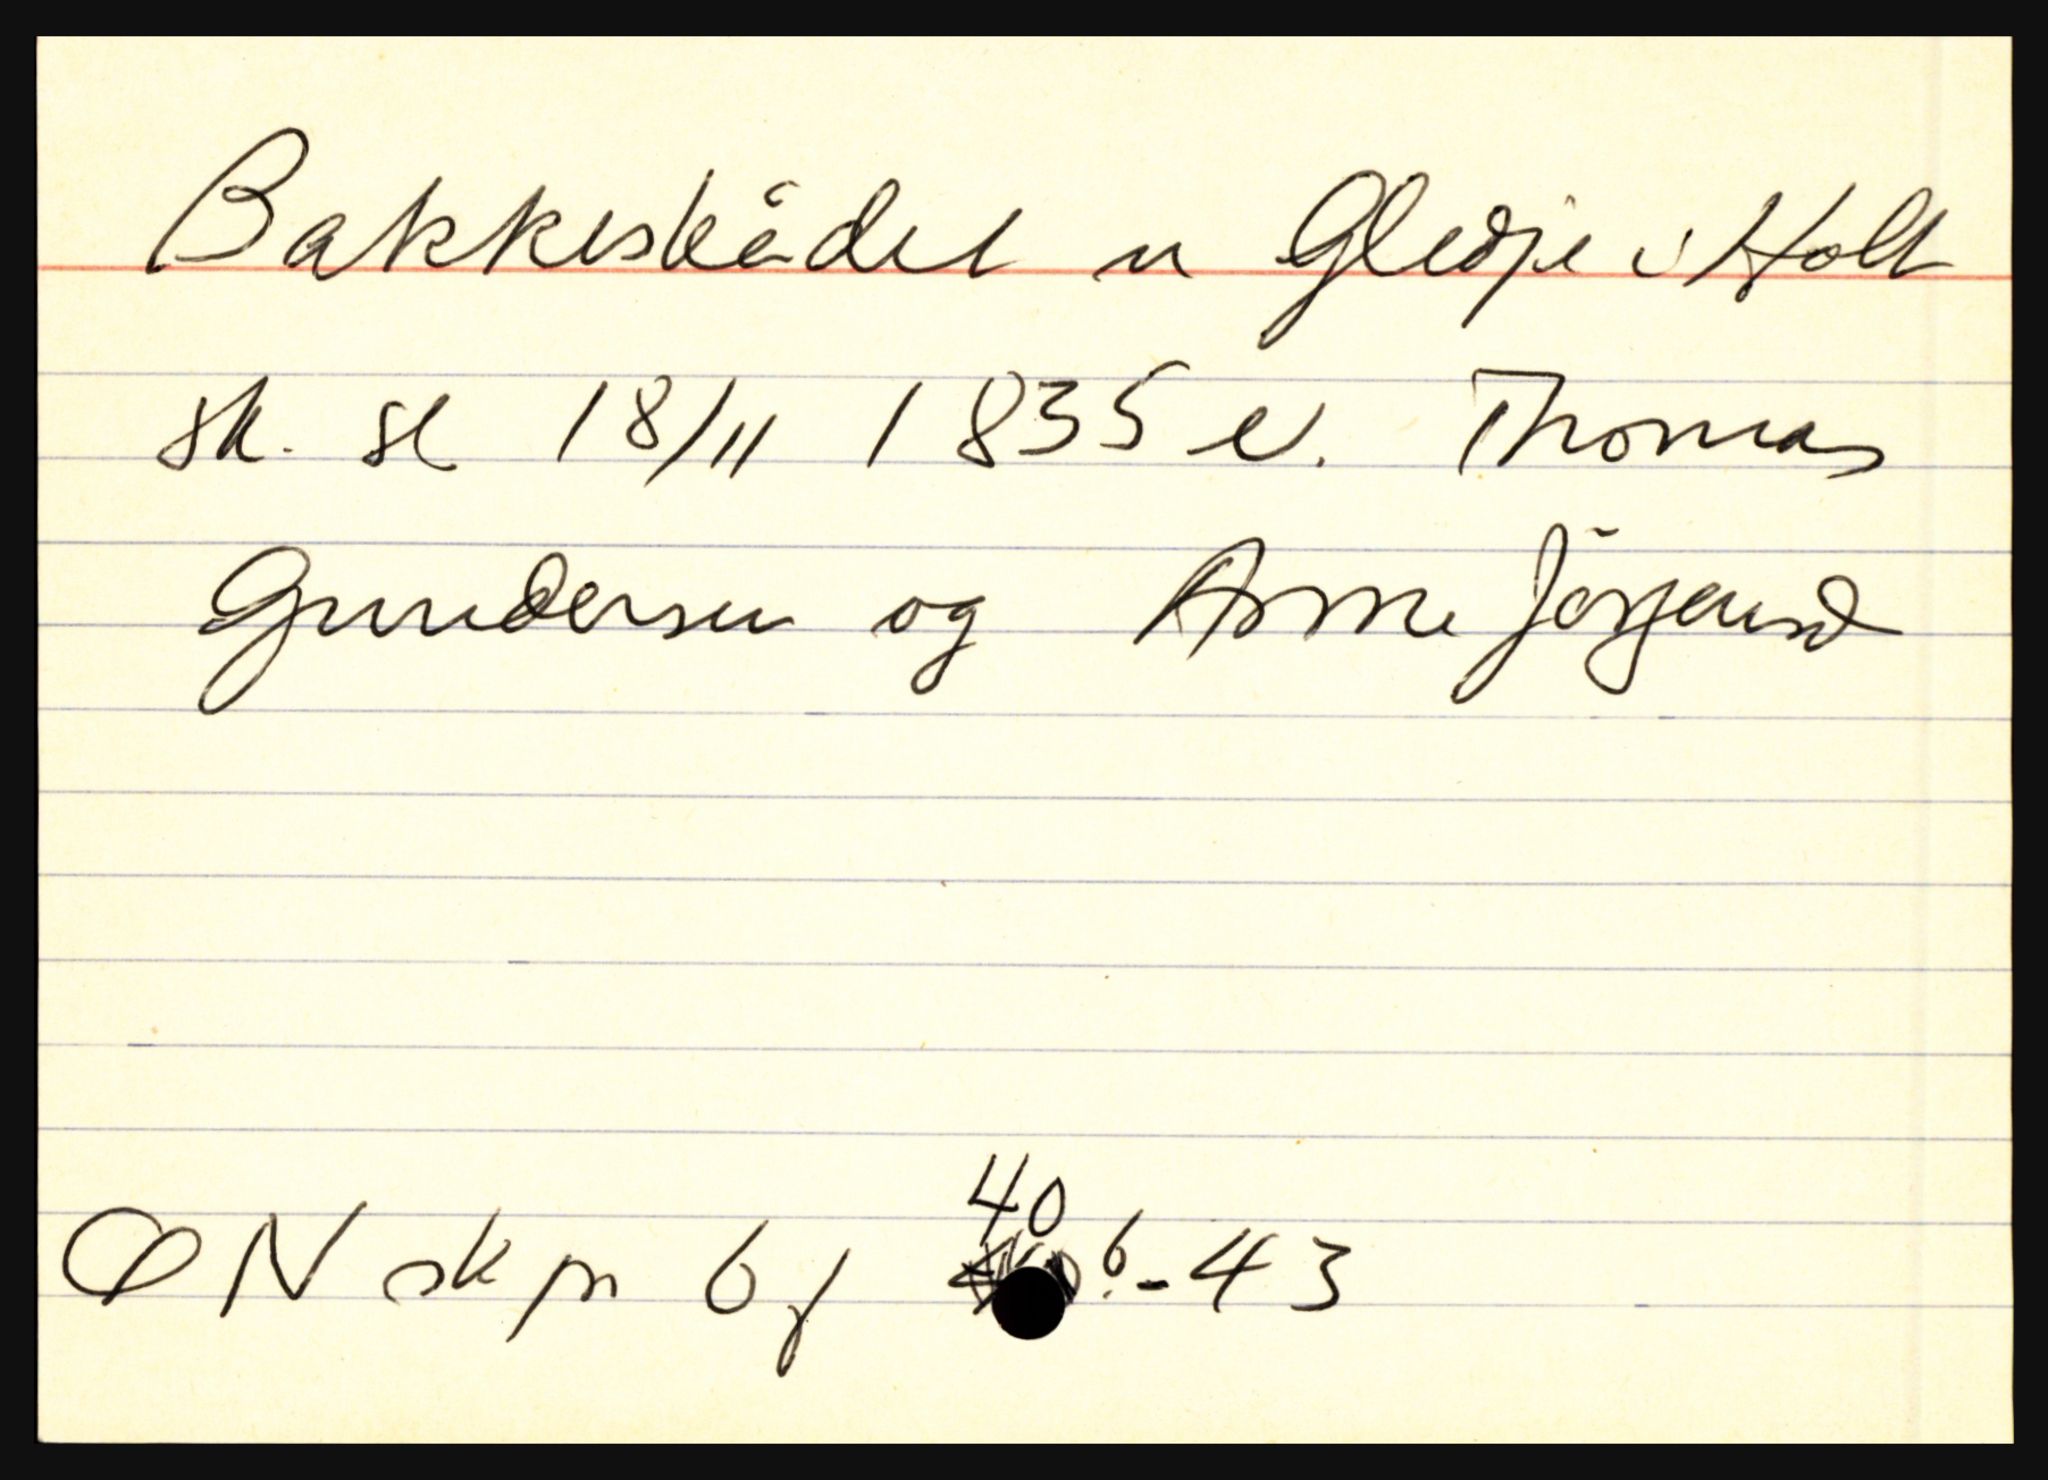 Bakkeskådet u Gledje i Holt
sk. sk 18/11 1835 e. Thomas
Gundersen og Anne Jörgensd
ØN sk pr 6 f 40 b - 43